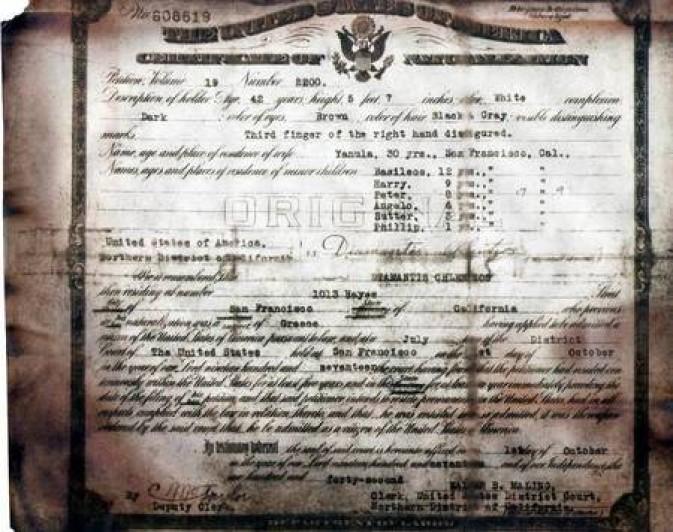 No 608619
THE UNITED STATES OF AMERICA
CERTIFICATE OF NATURALIZATION
Petition, Volume 19 Number 2200.
Description of holder: Age, 42 years; height, 5 feet 7 inches; color, White complexion
Dark ; color of eyes, Brown ; color of hair Black & Gray; visible distinguishing
marks Third finger of the right hand disfigured.
Name, age and place of residence of wife Yanula, 30 yrs., San Francisco, Cal.,
Names, ages and places of residence of minor children Basileos, 12 yrs., " "
Harry, 9 yrs., " "
Peter, 8 yrs., " "
Angelo, 4 yrs., " "
Sutter, 3 yrs., " "
Phillip, 1 yr., " "
ORIGINAL
United States of America,
Northern District of California } ss Diamantis
Be it remembered that DIAMANTIS
then residing at number 1013 Hayes Street
City of San Francisco State of California who previous
to his naturalization was a subject of Greece having applied to be admitted a
citizen of the United States of America pursuant to law, and at a July term of the District
Court of The United States held at San Francisco on the 1st day of October
in the year of our Lord nineteen hundred and seventeen the court having found that the petitioner had resided con-
tinuously within the United States for at least five years and in this State for at least one year immediately preceding the
date of the filing of his petition, and that said petitioner intends to reside permanently in the United States, had in all
respects complied with the law in relation thereto, and that he was entitled to be so admitted, it was thereupon
ordered by the said court that he be admitted as a citizen of the United States of America.
In testimony whereof the seal of said court is hereunto affixed on the 1st day of October
in the year of our Lord nineteen hundred and seventeen and of our Independence the
one hundred and forty-second
WALTER B. MALING,
By C M Taylor Clerk, United States District Court,
Deputy Clerk. Northern District of California.